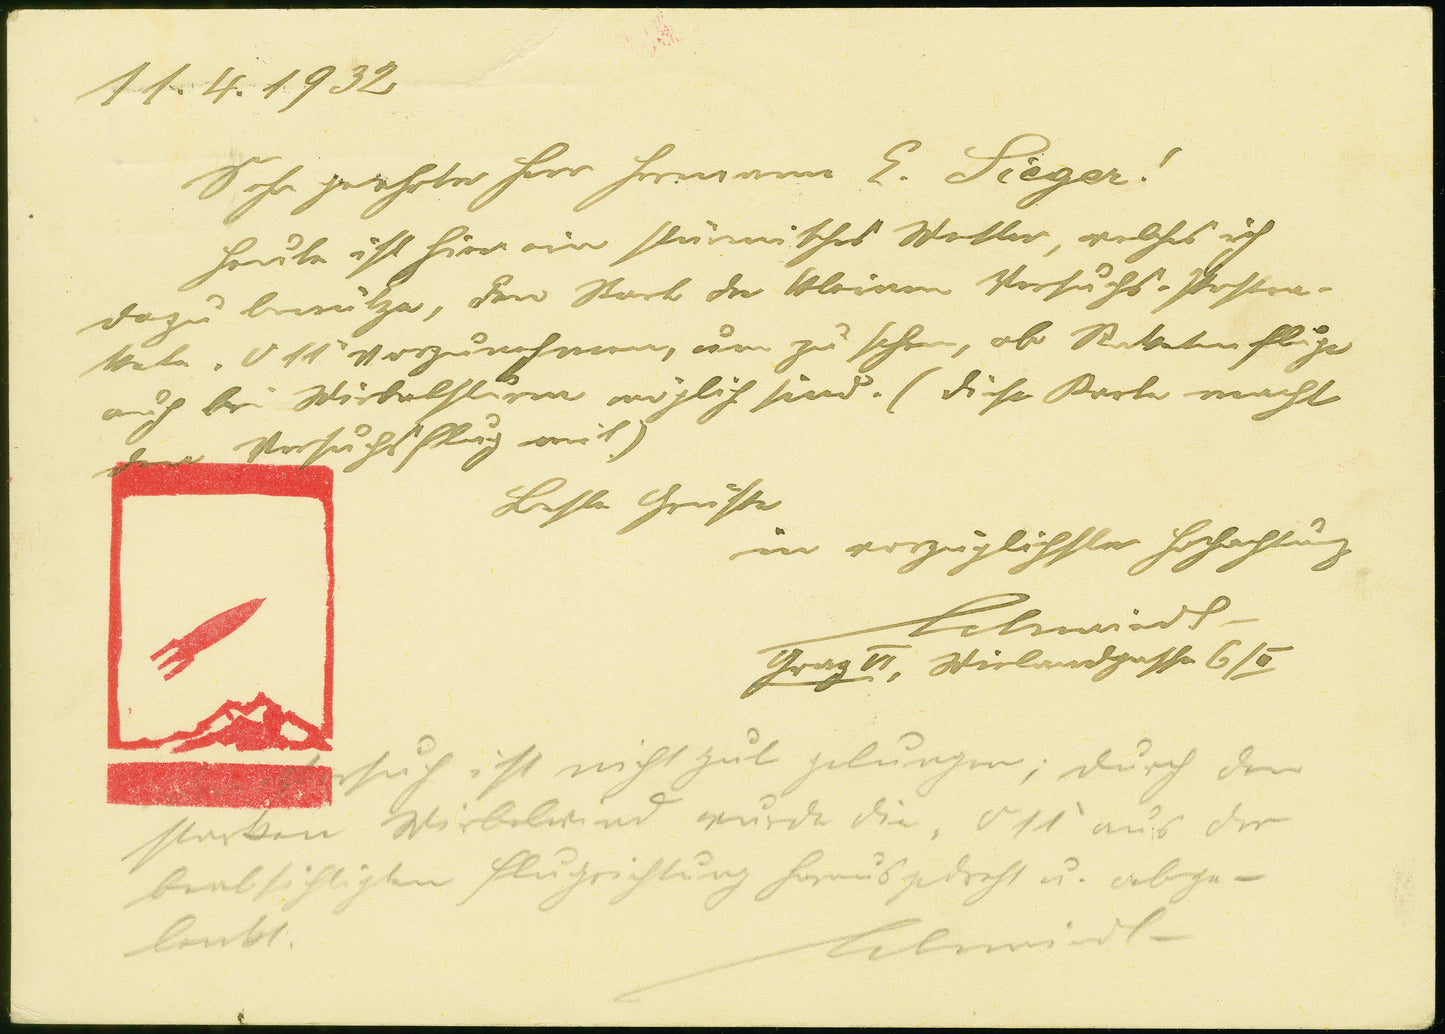 11.4.1932
Sehr geehrter Herr Hermann E. Sieger!
Heute ist hier ein stürmisches Wetter, welches ich
dazu benütze, den Start der kleinen Versuchs-Postra-
kete „V 11“ vorzunehmen, um zu sehen, ob Raketenflüge
auch bei Wirbelsturm möglich sind. (Diese Karte macht
den Versuchsflug mit)
Beste Grüsse
in vorzüglichster Hochachtung
Schmiedl
Graz VI, Wielandgasse 6/II
Versuch ist nicht gut gelungen; durch den
starken Wirbelwind wurde die „V 11“ aus der
beabsichtigten Flugrichtung herausgedreht u. abge-
lenkt.
Schmiedl